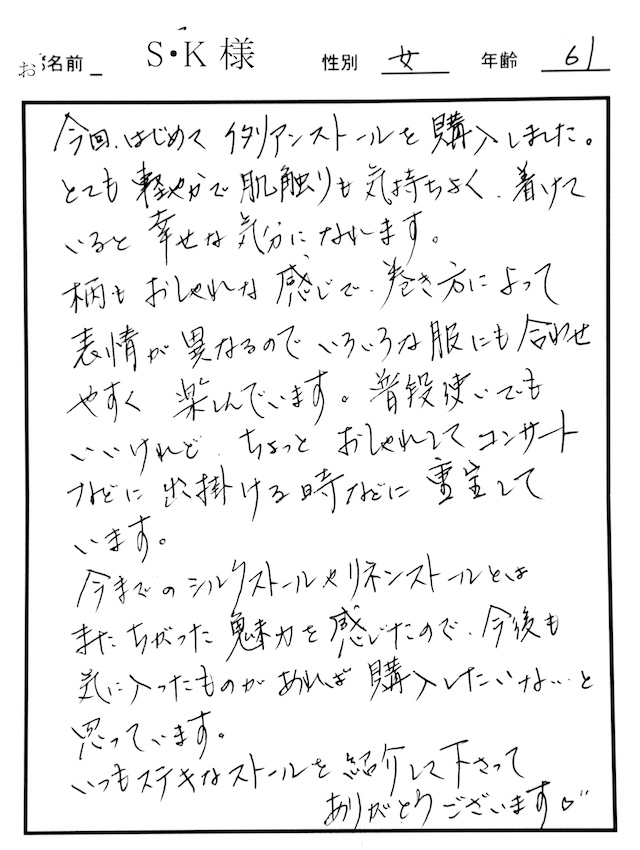 お名前 S・K様 性別 女 年齢 61
今回、はじめて イタリアンストールを購入しました。
とても軽やかで肌触りも気持ちよく、着けて
いると幸せな気分になれます。
柄もおしゃれな感じで、巻き方によって
表情が異なるのでいろいろな服にも合わせ
やすく 楽しんでいます。普段使いでも
いいけれど、ちょっとおしゃれしてコンサート
などに出掛ける時などに重宝して
います。
今までのシルクストールやリネンストールとは
またちがった魅力を感じたので、今後も
気に入ったものがあれば購入したいな…と
思っています。
いつもステキなストールを紹介して下さって
ありがとうございます♡